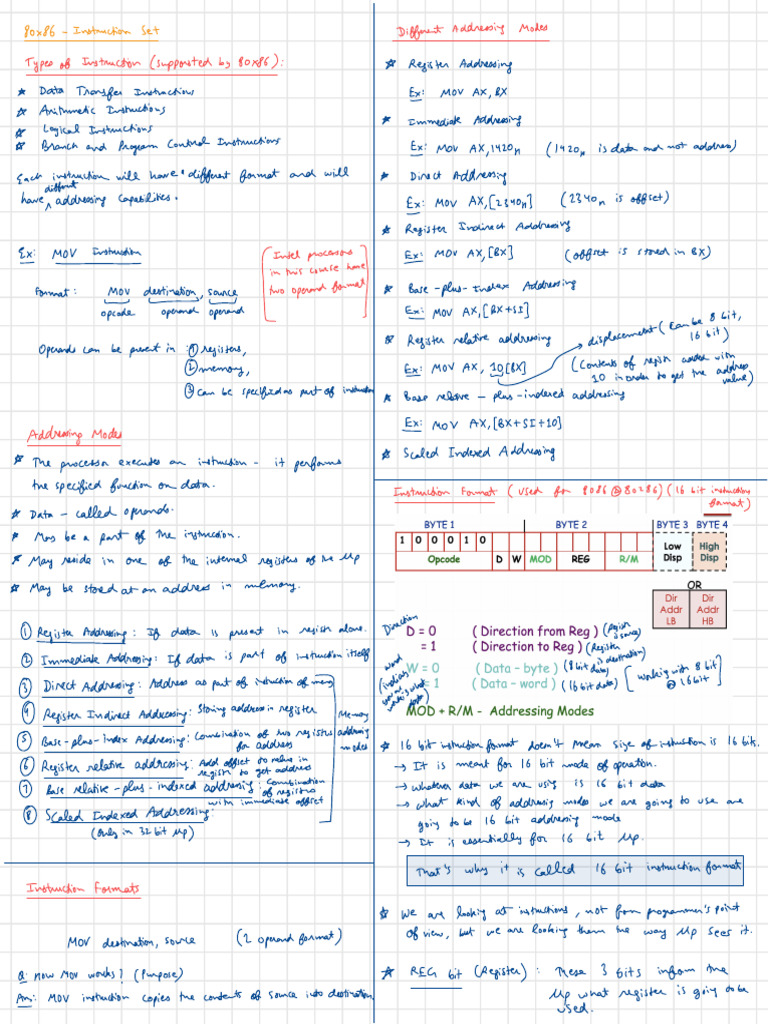 80x86 - Instruction Set
Types of Instruction (supported by 80x86):
* Data Transfer Instructions
* Arithmetic Instructions
* Logical Instructions
* Branch and Program Control Instructions
Each instruction will have different format and will
have different addressing capabilities.
Ex: MOV Instruction
[Intel processors
in this course have
two operand format]
Format: MOV destination, source
opcode operand operand
Operands can be present in : ① registers,
② memory,
③ can be specified as part of instruction
Addressing Modes
* The processor executes an instruction - it performs
the specified function on data.
* Data - called operands.
* May be a part of the instruction.
* May reside in one of the internal registers of the μp
* May be stored at an address in memory.
① Register Addressing: If data is present in register alone.
② Immediate Addressing: If data is part of instruction itself
③ Direct Addressing: Address as part of instruction of memory
④ Register Indirect Addressing: Storing address in register
⑤ Base-plus-index Addressing: Combination of two registers
for address
⑥ Register relative addressing: Add offset to value in
register to get address
⑦ Base relative-plus-indexed addressing: Combination
of registers
with immediate offset
⑧ Scaled Indexed Addressing:
(only in 32 bit μp)
Memory
addressing
modes
Instruction Formats
MOV destination, source (2 operand format)
Q: How MOV works? (Purpose)
Ans: MOV instruction copies the contents of source into destination
Different Addressing Modes
* Register Addressing
Ex: MOV AX, BX
* Immediate Addressing
Ex: MOV AX, 1420H (1420H is data and not address)
* Direct Addressing
Ex: MOV AX, [2340H] (2340H is offset)
* Register Indirect Addressing
Ex: MOV AX, [BX] (offset is stored in BX)
* Base-plus-Index Addressing
Ex: MOV AX, [BX+SI]
* Register relative addressing
displacement (Can be 8 bit,
16 bit)
Ex: MOV AX, 10[BX]
(Contents of register added with
10 in order to get the address
value)
* Base relative - plus-indexed addressing
Ex: MOV AX, [BX+SI+10]
* Scaled Indexed Addressing
Instruction Format (used for 8086 @ 80286) (16 bit instruction
format)
BYTE 1 BYTE 2 BYTE 3 BYTE 4
1 0 0 0 1 0
Opcode D W MOD REG R/M
Low Disp
High Disp
OR
Dir Addr LB
Dir Addr HB
Direction
D = 0 ( Direction from Reg ) (Register is source)
= 1 ( Direction to Reg ) (Register is destination)
W = 0 ( Data - byte ) (8 bit data)
= 1 ( Data - word ) (16 bit data)
[working with 8 bit
@ 16 bit]
MOD + R/M - Addressing Modes
* 16 bit instruction format doesn't mean size of instruction is 16 bits.
→ It is meant for 16 bit mode of operation.
→ whatever data we are using is 16 bit data
→ what kind of addressing modes we are going to use are
going to be 16 bit addressing mode
→ It is essentially for 16 bit μp.
That's why it is called 16 bit instruction format
* We are looking at instructions, not from programmer's point
of view, but we are looking them the way μp sees it.
* REG bit (Register) : These 3 bits inform the
μp what register is going to be
used.